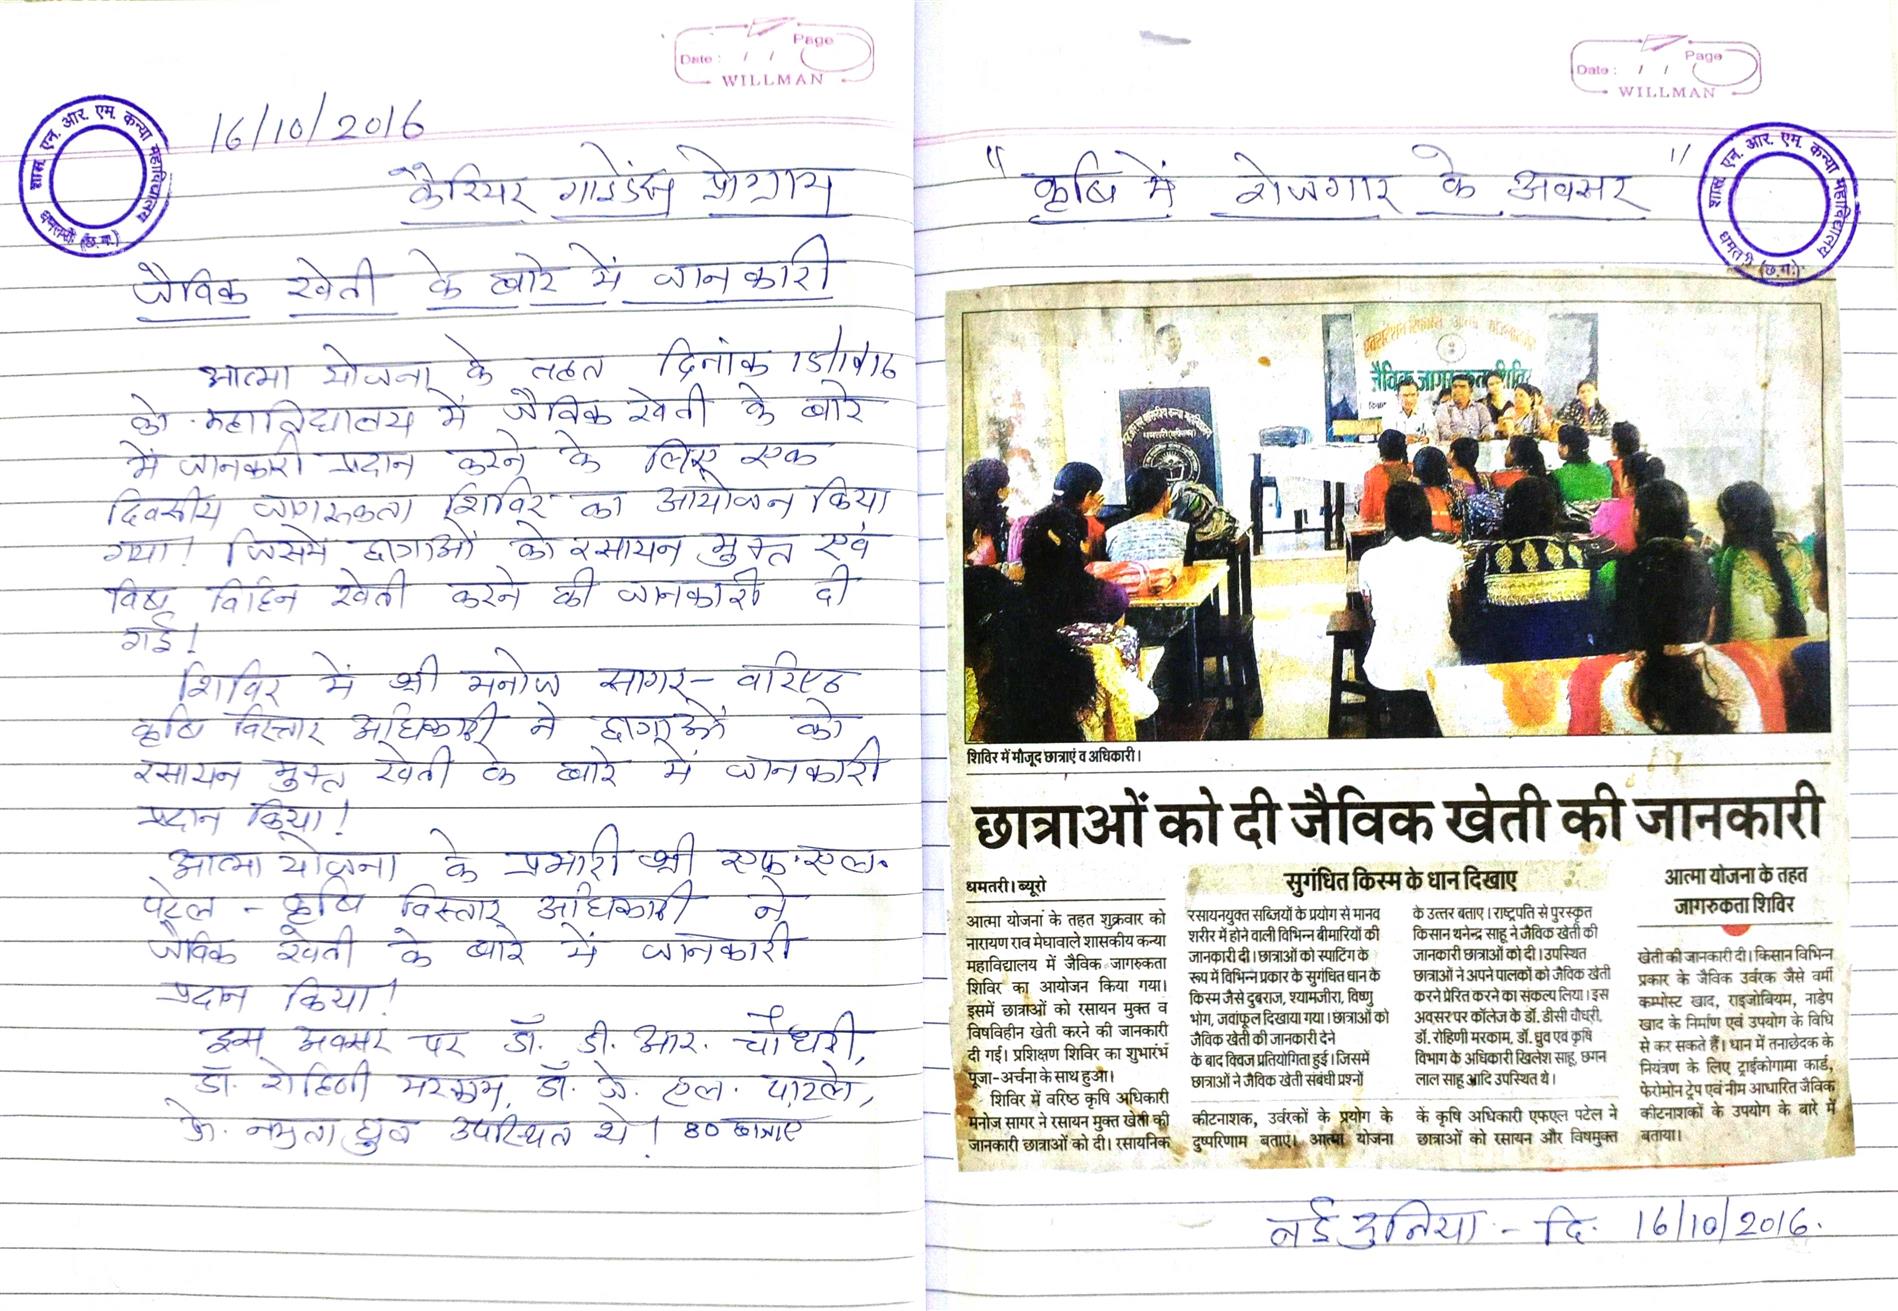 Date : / / Page
WILLMAN
शास. एन. आर. एम. कन्या महाविद्यालय
धमतरी (छ.ग.)
16/10/2016
कैरियर गाईडेंस प्रोग्राम
जैविक खेती के बारे में जानकारी
आत्मा योजना के तहत दिनांक
को महाविद्यालय में जैविक खेती के बारे
में जानकारी प्रदान करने के लिए एक
दिवसीय जागरुकता शिविर का आयोजन किया
गया! जिसमें छात्राओं को रसायन मुक्त एवं
विष विहिन खेती करने की जानकारी दी
गई!
शिविर में श्री मनोज सागर - वरिष्ठ
कृषि विस्तार अधिकारी ने छात्राओं को
रसायन मुक्त खेती के बारे में जानकारी
प्रदान किया!
आत्मा योजना के प्रभारी श्री एफ.एल.
पटेल - कृषि विस्तार अधिकारी ने
जैविक खेती के बारे में जानकारी
प्रदान किया!
इस अवसर पर डॉ. डी. आर. चौधरी,
डॉ. रोहिणी मरकाम, डॉ. जे. एल. पाटले,
के. नम्रता ध्रुव उपस्थित थे! 80 छात्राएं
Date : / / Page
WILLMAN
शास. एन. आर. एम. कन्या महाविद्यालय
धमतरी (छ.ग.)
"कृषि में रोजगार के अवसर"
जैविक जागरूकता शिविर
शिविर में मौजूद छात्राएं व अधिकारी।
छात्राओं को दी जैविक खेती की जानकारी
धमतरी। ब्यूरो
आत्मा योजना के तहत शुक्रवार को
नारायण राव मेघावाले शासकीय कन्या
महाविद्यालय में जैविक जागरुकता
शिविर का आयोजन किया गया।
इसमें छात्राओं को रसायन मुक्त व
विषविहीन खेती करने की जानकारी
दी गई। प्रशिक्षण शिविर का शुभारंभ
पूजा-अर्चना के साथ हुआ।
शिविर में वरिष्ठ कृषि अधिकारी
मनोज सागर ने रसायन मुक्त खेती की
जानकारी छात्राओं को दी। रसायनिक
सुगंधित किस्म के धान दिखाए
रसायनयुक्त सब्जियों के प्रयोग से मानव
शरीर में होने वाली विभिन्न बीमारियों की
जानकारी दी। छात्राओं को स्पाटिंग के
रूप में विभिन्न प्रकार के सुगंधित धान के
किस्म जैसे दुबराज, श्यामजीरा, विष्णु
भोग, जवांफूल दिखाया गया। छात्राओं को
जैविक खेती की जानकारी देने
के बाद क्विज प्रतियोगिता हुई। जिसमें
छात्राओं ने जैविक खेती संबंधी प्रश्नों
के उत्तर बताए। राष्ट्रपति से पुरस्कृत
किसान थनेन्द्र साहू ने जैविक खेती की
जानकारी छात्राओं को दी। उपस्थित
छात्राओं ने अपने पालकों को जैविक खेती
करने प्रेरित करने का संकल्प लिया। इस
अवसर पर कॉलेज के डॉ. डीसी चौधरी,
डॉ. रोहिणी मरकाम, डॉ. ध्रुव एवं कृषि
विभाग के अधिकारी खिलेश साहू, छगन
लाल साहू आदि उपस्थित थे।
कीटनाशक, उर्वरकों के प्रयोग के
दुष्परिणाम बताए। आत्मा योजना
के कृषि अधिकारी एफएल पटेल ने
छात्राओं को रसायन और विषमुक्त
आत्मा योजना के तहत
जागरुकता शिविर
खेती की जानकारी दी। किसान विभिन्न
प्रकार के जैविक उर्वरक जैसे वर्मी
कम्पोस्ट खाद, राइजोबियम, नाडेप
खाद के निर्माण एवं उपयोग के विधि
से कर सकते हैं। धान में तनाछेदक के
नियंत्रण के लिए ट्राईकोगामा कार्ड,
फेरोमोन ट्रेप एवं नीम आधारित जैविक
कीटनाशकों के उपयोग के बारे में
बताया।
नई दुनिया - दि. 16/10/2016.